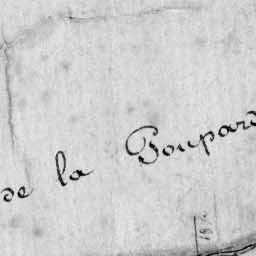 de la Poupard